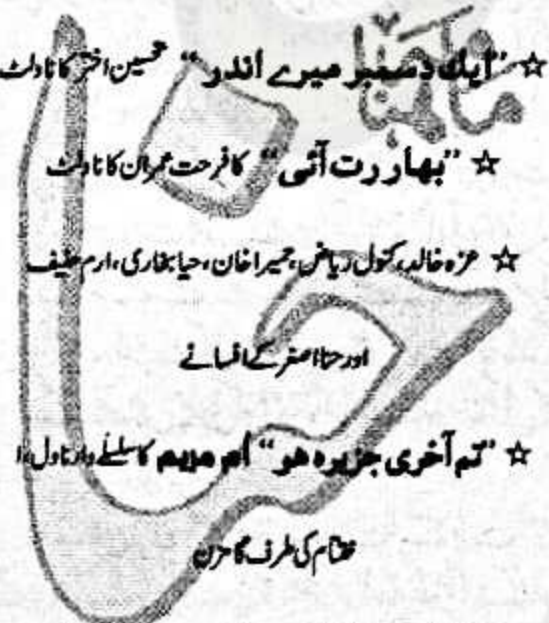 ماہنامہ حنا
☆ ”ایک دسمبر میرے اندر“ تحسین اختر کا ناولٹ
☆ ”بہار رت آئی“ کا فرحت عمران کا ناولٹ
☆ عزہ خالد، کنول ریاض، حمیرا خان، حیا بخاری، ارم حنیف
اور حنا اصغر کے افسانے
☆ ”تم آخری جزیرہ ہو“ اُم مریم کا سلسلے وار ناول، ا
کی طرف گامزن